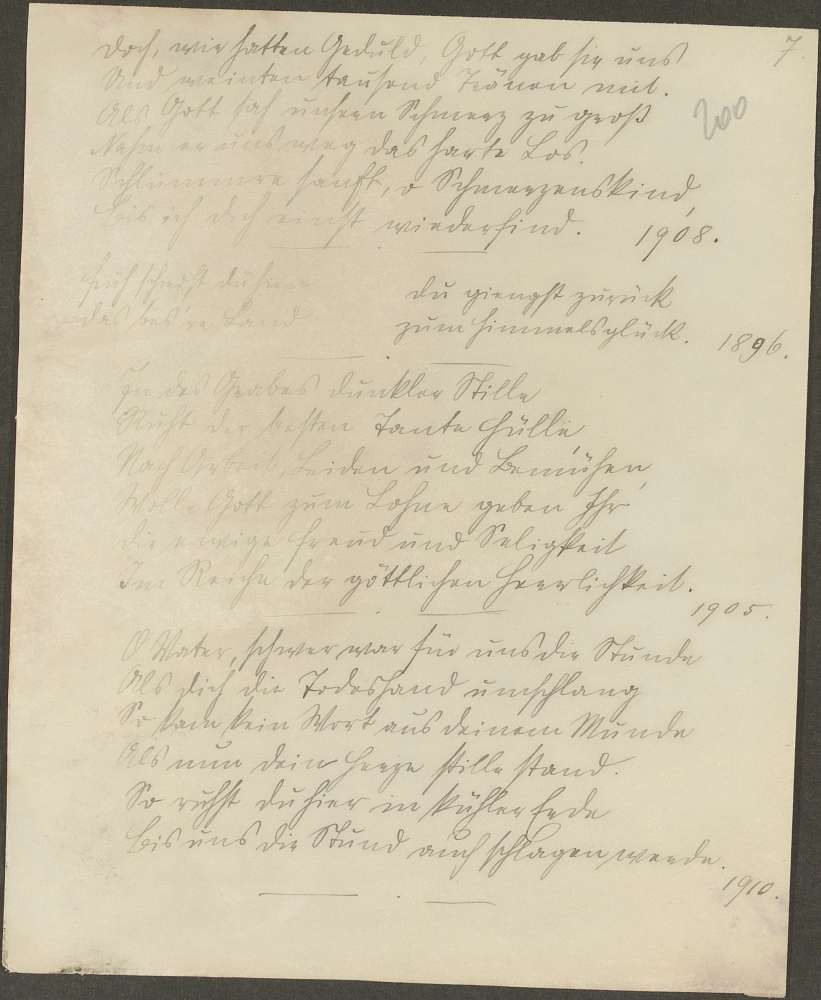 7.
Doch, wir hatten Geduld, Gott gab sie uns
Und weinten tausend Tränen mit.
200
Als Gott sah unsern Schmerz zu groß
Nahm er uns weg das harte Los.
Schlummre sanft, o Schmerzenskind,
Bis ich dich einst wiederfind. 1908.
Früh schiedst du hin
das bess're Land
Du giengst zurück
zum Himmelsglück. 1896.
In des Grabes dunkler Stille
Ruht der besten Tante Hülle,
Nach Arbeit, Leiden und Bemühen,
Woll Gott zum Lohne geben Ihr
die ewige Freud und Seligkeit
Im Reiche der göttlichen Herrlichkeit.
1905.
O Vater, schwer war für uns die Stunde
Als dich die Todeshand umschlang
So kam kein Wort aus deinem Munde
Als nun dein Herze stille stand.
So ruhst du hier in kühler Erde
Bis uns die Stund auch schlagen werde.
1910.